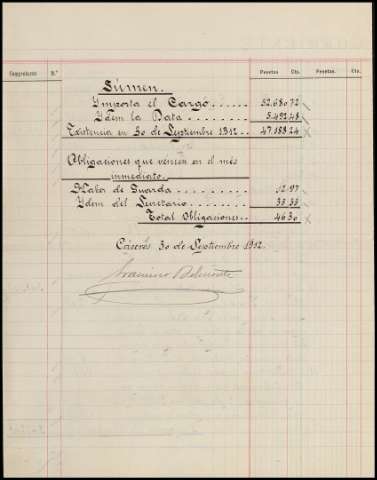 N.º Pesetas Cts. Pesetas. Cts.
Súmen.
Ymporta el Cargo...... 52.680.72
Ydem la Data........ 5.492.48
Existencia en 30 de Septiembre 1912.. 47.188.24
Obligaciones que vencen en el més
inmediato.
Haber de Guarda......... 12.97
Ydem del Secretario........ 33.33
Total Obligaciones.. 46 30
Cáceres 30 de Septiembre 1912.